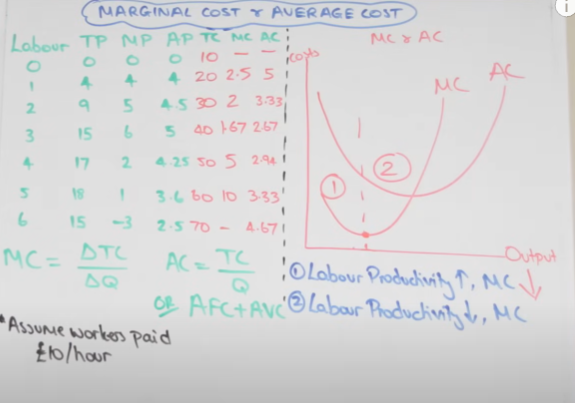 MARGINAL COST & AVERAGE COST
Labour TP MP AP TC MC AC
0 0 0 0 10 – –
1 4 4 4 20 2.5 5
2 9 5 4.5 30 2 3.33
3 15 6 5 40 1.67 2.67
4 17 2 4.25 50 5 2.94
5 18 1 3.6 60 10 3.33
6 15 -3 2.5 70 - 4.67
MC = ΔTC
ΔQ
AC = TC
Q
OR AFC+AVC
*Assume workers paid
£10/hour
MC & AC
Costs
MC
AC
1
2
Output
① Labour Productivity ↑, MC ↓
② Labour Productivity ↓, MC
i